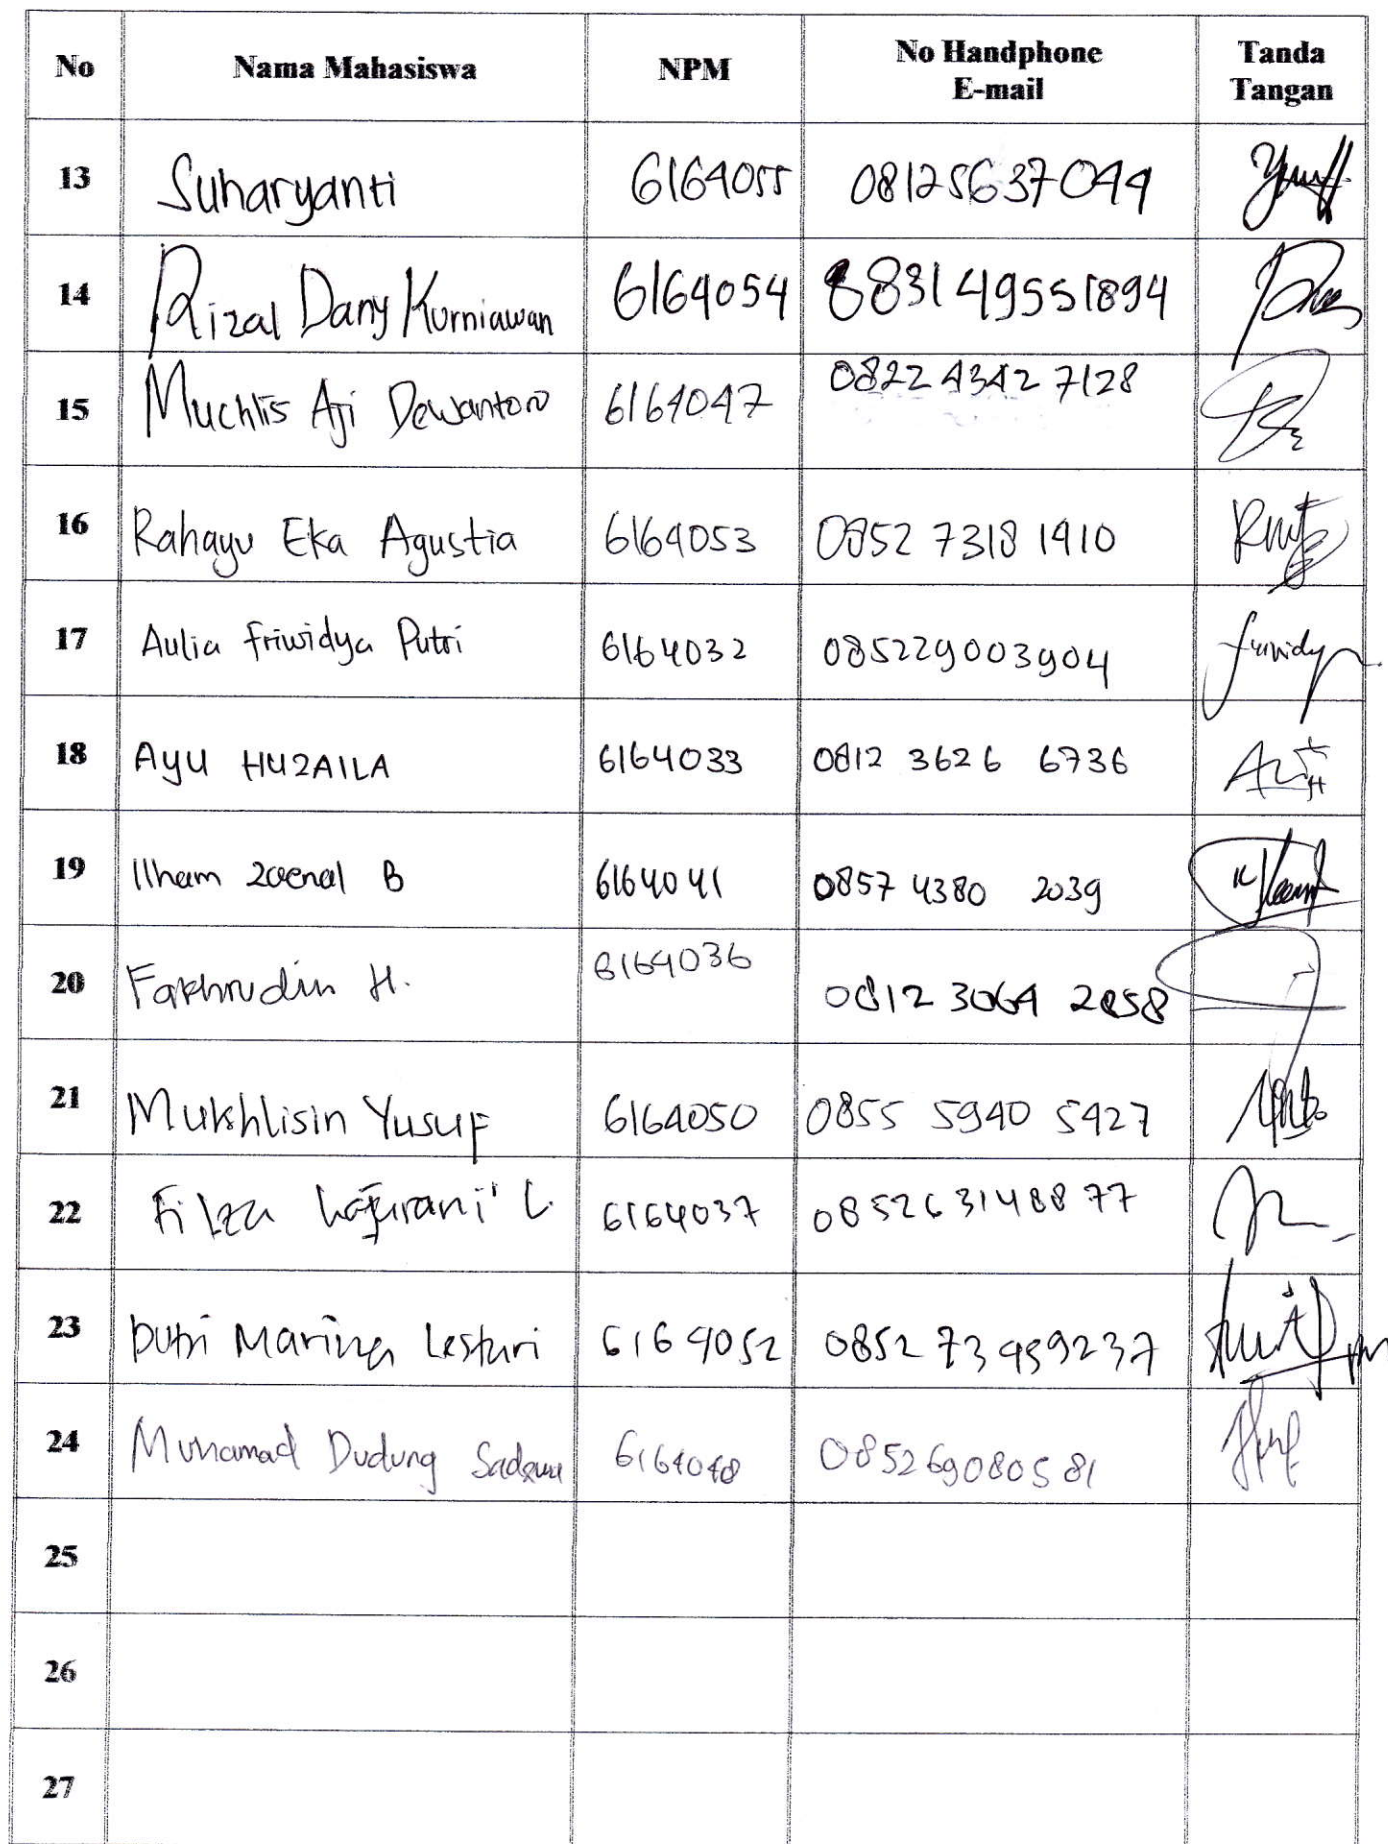 No Nama Mahasiswa NPM No Handphone E-mail Tanda Tangan
13 Suharyanti 6164055 08125637044
14 Rizal Dany Kurniawan 6164054 883149551894
15 Muchlis Aji Dewantoro 6164047 0822 4342 7128
16 Rahayu Eka Agustia 6164053 0852 7318 1910
17 Aulia Friwidya Putri 6164032 085229003904
18 Ayu HUZAILA 6164033 0812 3626 6736
19 Ilham Zaenal B 6164041 0857 4380 2039
20 Fakhrudin H. 6164036 0812 3064 2858
21 Mukhlisin Yusuf 6164050 0855 5940 5427
22 Filza L. 6164037 085263148877
23 Putri Mariza Lestari 6164052 0852 73459237
24 Muhamad Dudung 6164048 085269080581
25
26
27